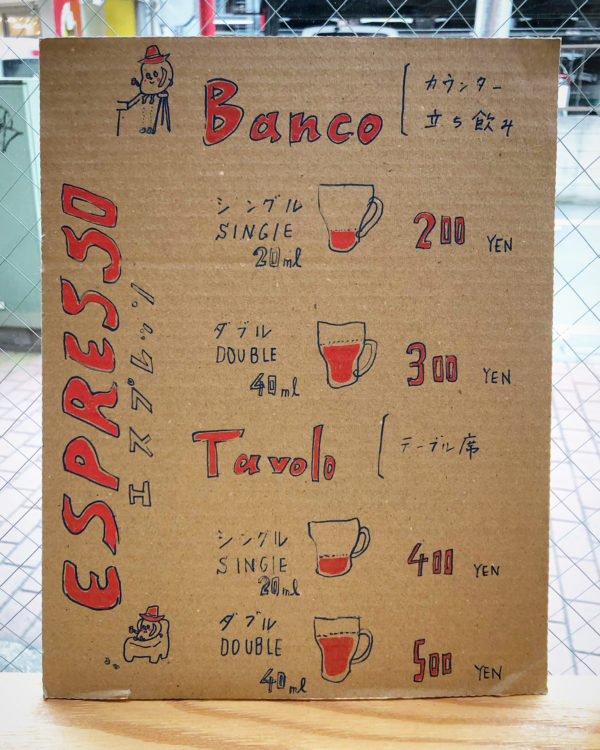 ESPRESSO
エスプレッソ
Banco
カウンター
立ち飲み
シングル
SINGlE
20ml
200 YEN
ダブル
DOUBLE
40ml
300 YEN
Tavolo
テーブル席
シングル
SINGlE
20ml
400 YEN
ダブル
DOUBLE
40ml
500 YEN